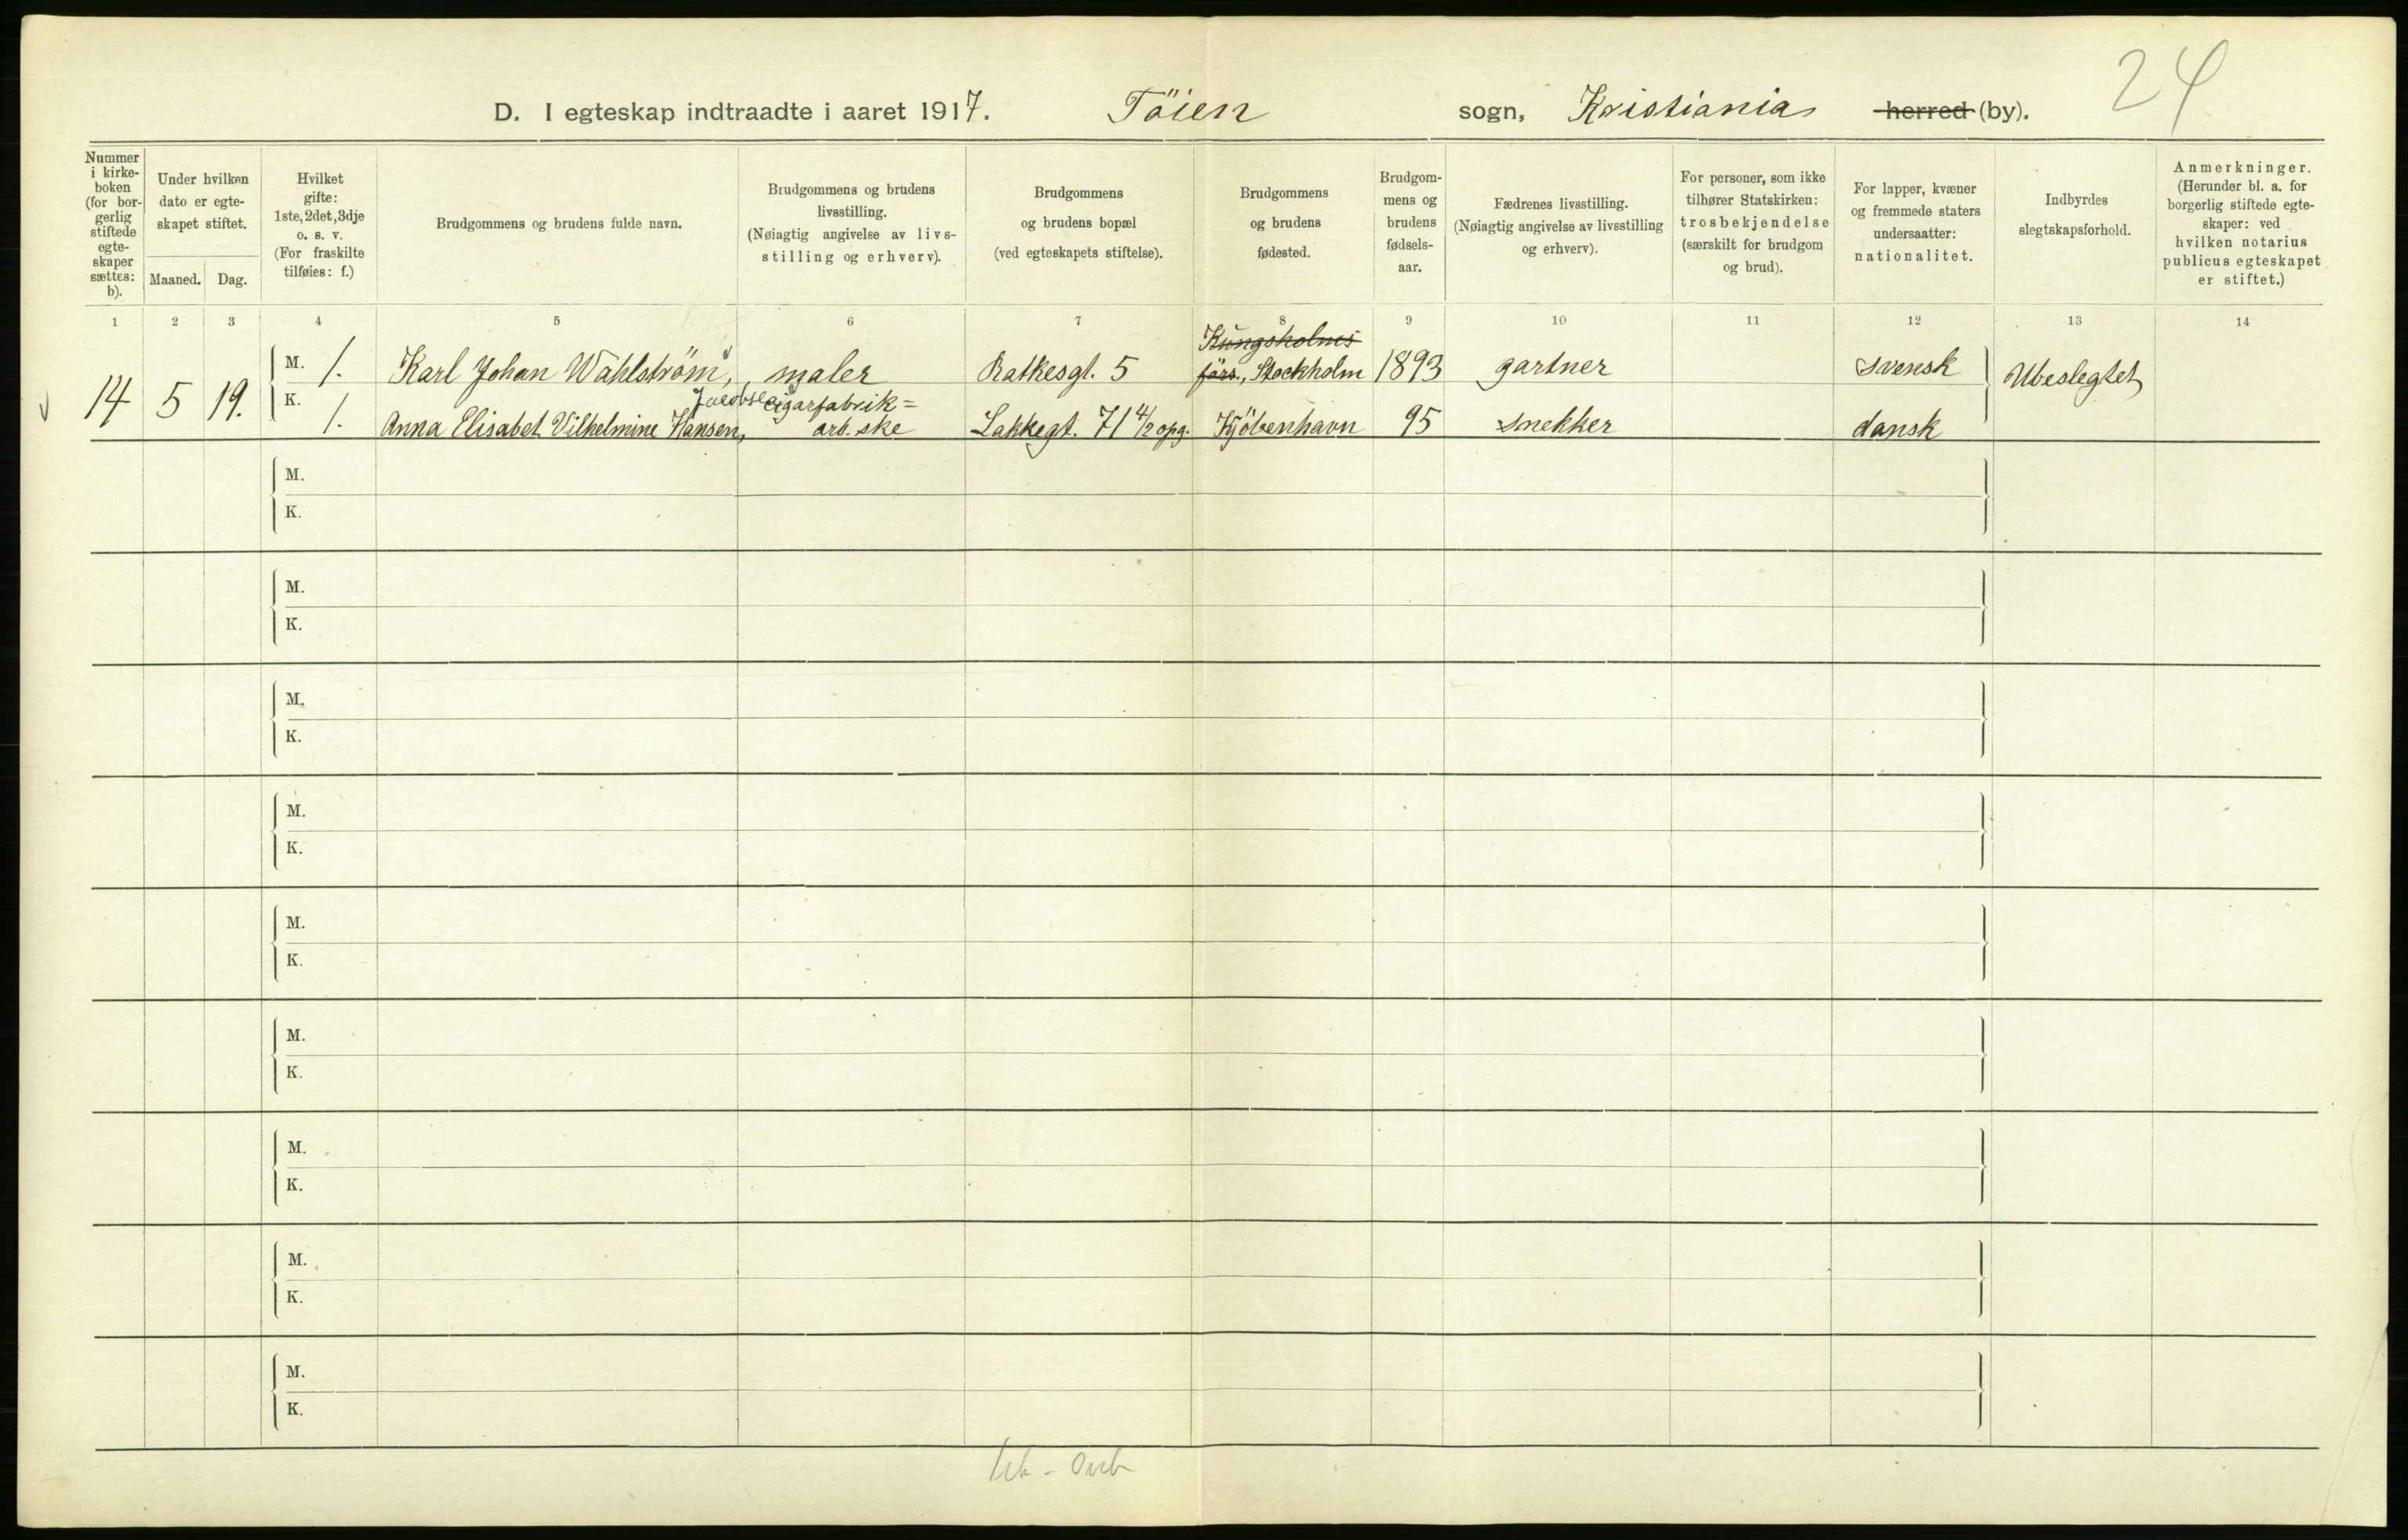 24
D. I egteskap indtraadte i aaret 1917. Töien sogn, Kristiania herred (by).
Nummer i kirkeboken (for borgerlig stiftede egteskaper sættes: b).
Under hvilken dato er egteskapet stiftet.
Maaned. Dag.
Hvilket gifte: 1ste, 2det, 3dje o. s. v. (For fraskilte tilføies: f.)
Brudgommens og brudens fulde navn.
Brudgommens og brudens livsstilling. (Nøiagtig angivelse av livsstilling og erhverv).
Brudgommens og brudens bopæl (ved egteskapets stiftelse).
Brudgommens og brudens fødested.
Brudgommens og brudens fødselsaar.
Fædrenes livsstilling. (Nøiagtig angivelse av livsstilling og erhverv).
For personer, som ikke tilhører Statskirken: trosbekjendelse (særskilt for brudgom og brud).
For lapper, kvæner og fremmede staters undersaatter: nationalitet.
Indbyrdes slegtskapsforhold.
Anmerkninger. (Herunder bl. a. for borgerlig stiftede egteskaper: ved hvilken notarius publicus egteskapet er stiftet.)
1 2 3 4 5 6 7 8 9 10 11 12 13 14
Kungsholms
14 5 19. M. 1. Karl Johan Wahlström, maler Ratkesgt. 5 förs., Stockholm 1893 gartner svensk Ubeslegtet
Jacobsen cigarfabrik=
K. 1. Anna Elisabet Vilhelmine Hansen, arb.ske Lakkegt. 71 4/2 opg. Kjöbenhavn 95 snekker dansk
M.
K.
M.
K.
M.
K.
M.
K.
M.
K.
M.
K.
M.
K.
M.
K.
M.
K.